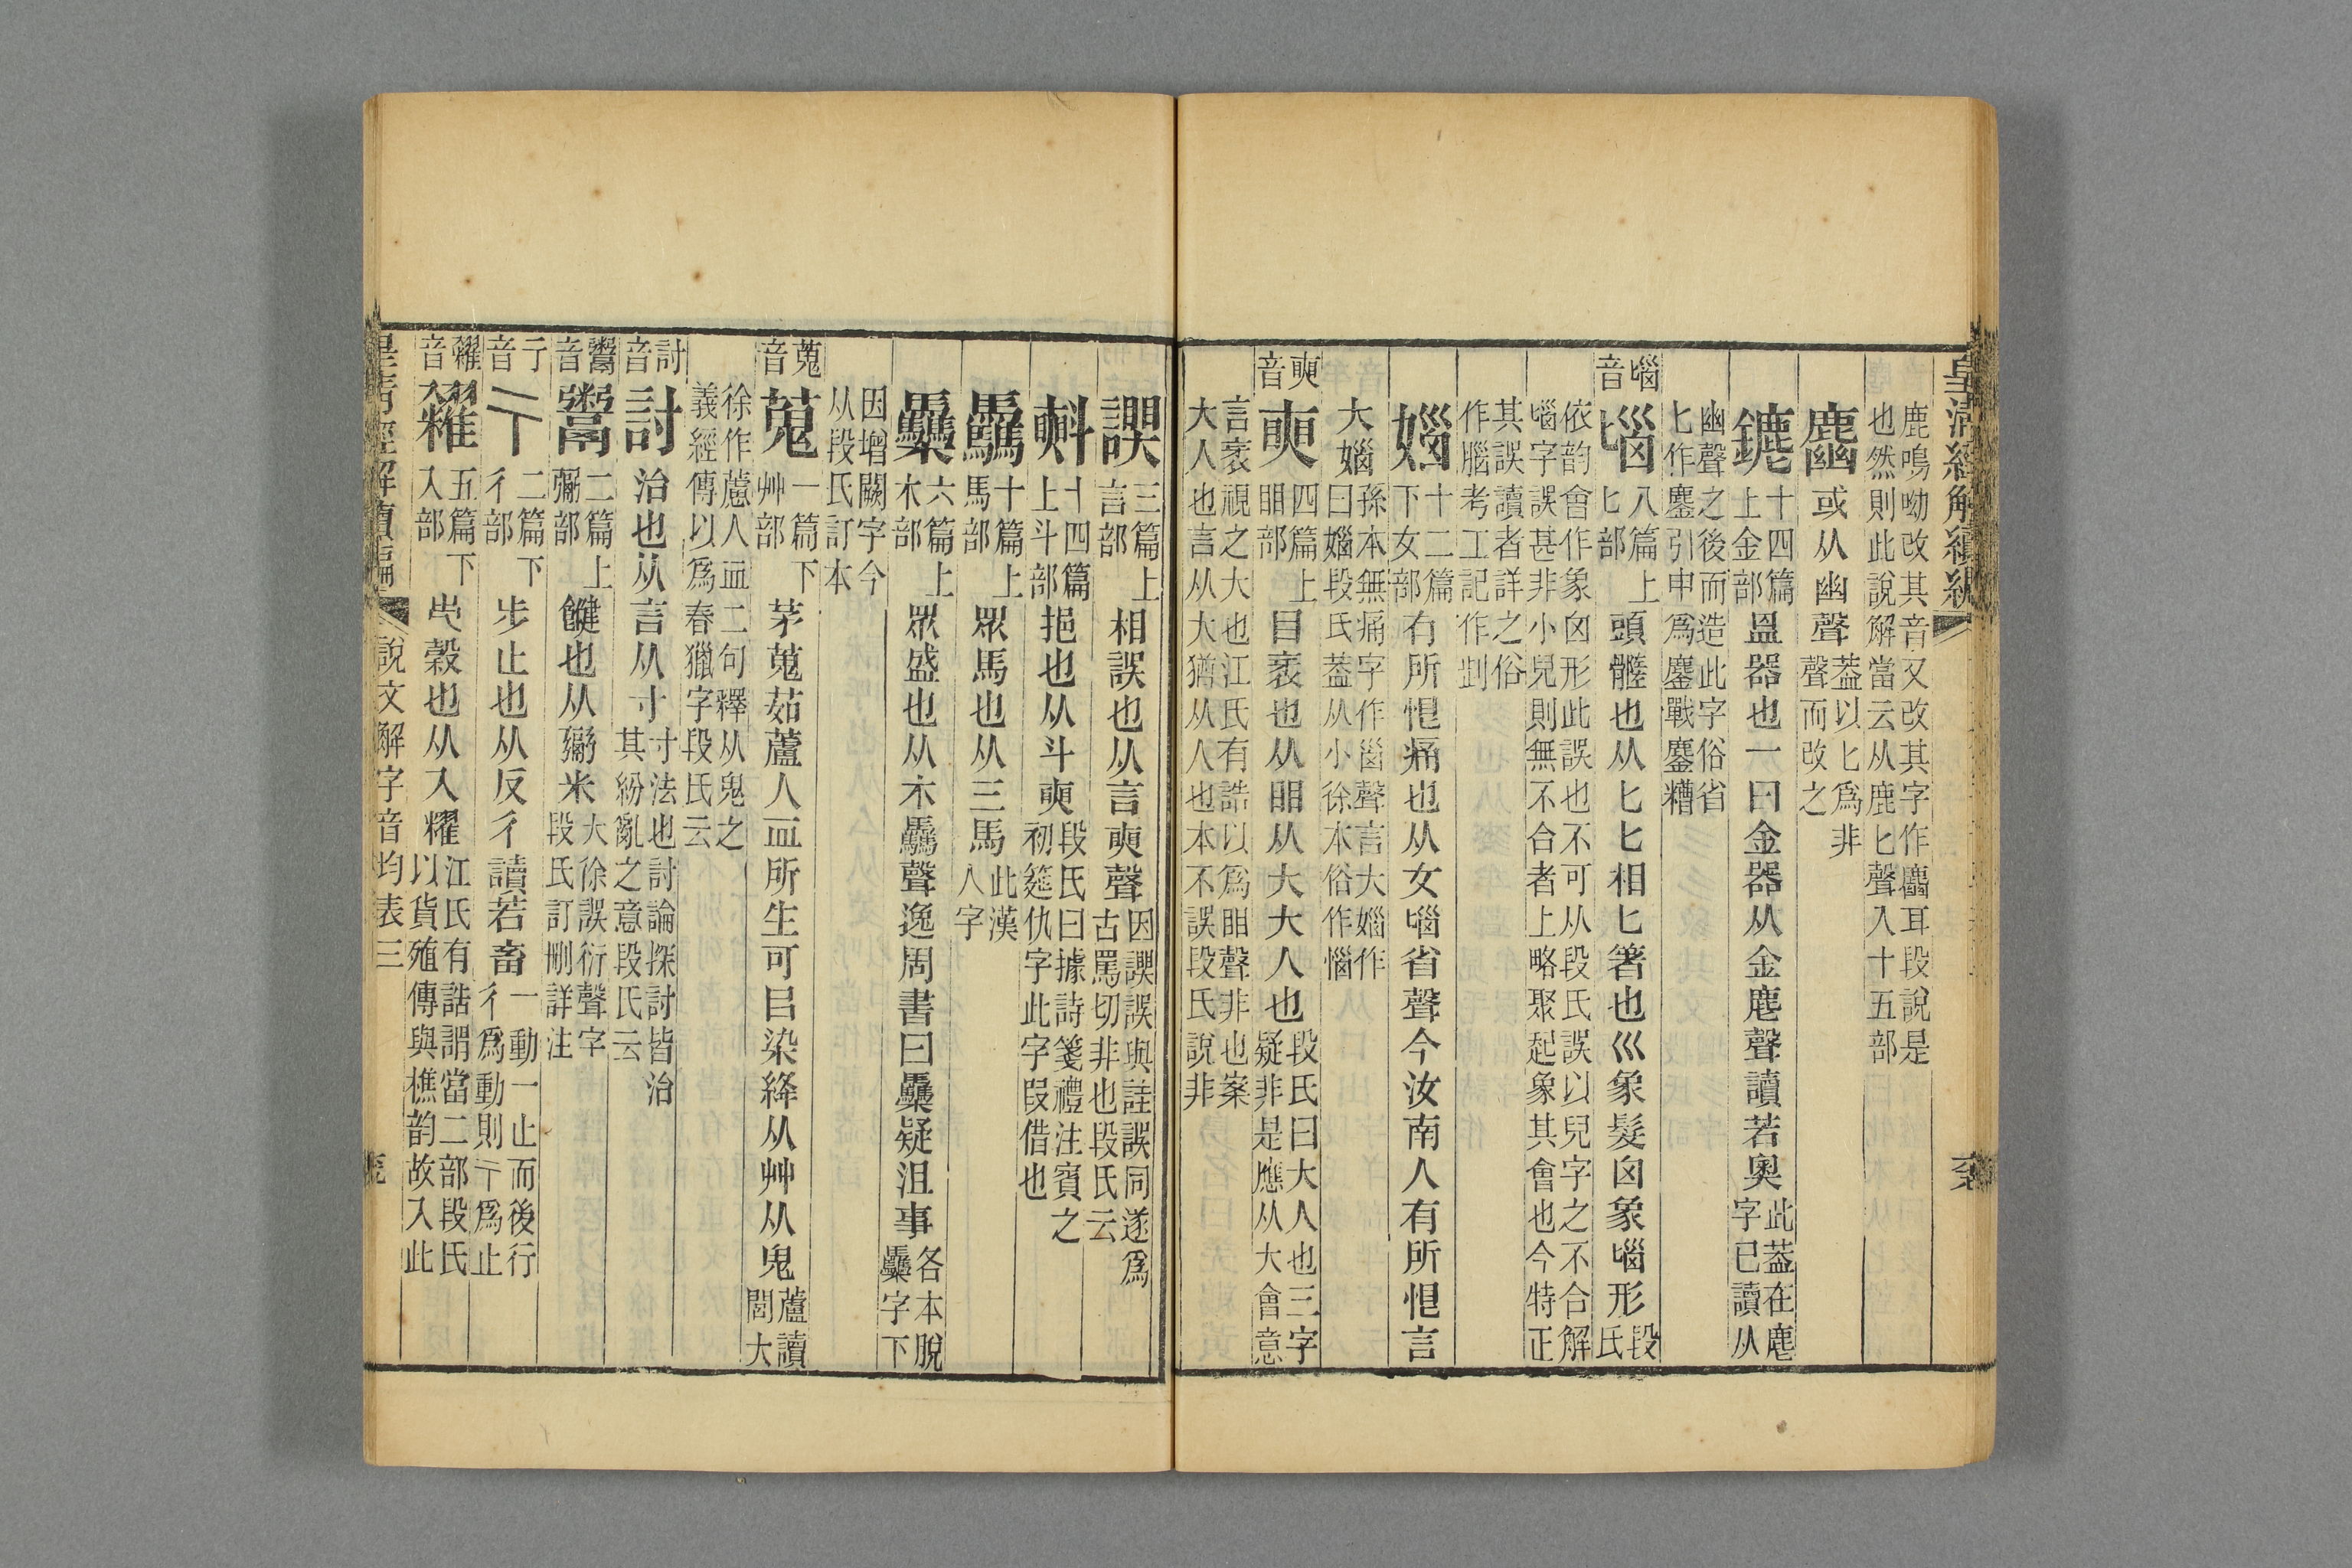 皇清經解續編
鹿鳴呦改其音又改其字作麔耳段說是
也然則此說解當云从鹿匕聲入十五部
或从幽聲蓋以匕爲非
聲而改之
鏕十四篇
上金部
昷器也一曰金器从金麀聲讀若奧此蓋在麀
字已讀从
幽聲之後而造此字俗省
匕作鏖引申爲鏖戰鏖糟
𡿺音
𡿺八篇上
匕部
頭髓也从匕匕相匕箸也巛象髮囟象𡿺形段
氏
依韵會作象囟形此誤也不可从段氏誤以兒字之不合解
𡿺字誤甚非小兒則無不合者上略聚起象其會也今特正
其誤讀者詳之俗
作腦考工記作𠜶
㛴十二篇
下女部
有所恨痛也从女𡿺省聲今汝南人有所恨言
大㛴孫本無痛字作𡿺聲言大㛴作
曰㛴段氏蓋从小徐本俗作惱
𡙇音
𡙇四篇上
䀠部
目衺也从䀠从大大人也段氏曰大人也三字
疑非是應从大會意
言衺視之大也江氏有誥以爲䀠聲非也案
大人也言从大猶从人也本不誤段氏說非
三篇上
言部
相誤也从言𡙇聲因諆誤與註誤同遂爲
古罵切非也段氏云
十四篇
上斗部
挹也从斗𡙇段氏曰據詩箋禮注賓之
初筵仇字此字叚借也
驫十篇上
馬部
眾馬也从三馬此漢
人字
六篇上
木部
眾盛也从木驫聲逸周書曰疑沮事各本脫
字下
因增闕字今
从段氏訂本
蒐音
蒐一篇下
艸部
茅蒐茹藘人血所生可㠯染絳从艸从鬼藘讀
閭大
徐作藘人血二句釋从鬼之
義經傳以爲春獵字段氏云
討音
討治也从言从寸寸法也討論探討皆治
其紛亂之意段氏云
鬻音
鬻二篇上
䰜部
䭈也从䰜米大徐誤衍聲字
段氏訂刪詳注
亍音
亍二篇下
彳部
步止也从反彳讀若畜一動一止而後行
彳爲動則亍爲止
糴音
糴五篇下
入部
㞢穀也从入䊮江氏有誥謂當二部段氏
以貨殖傳與樵韵故入此
皇清經解續編
說文解字音均表三